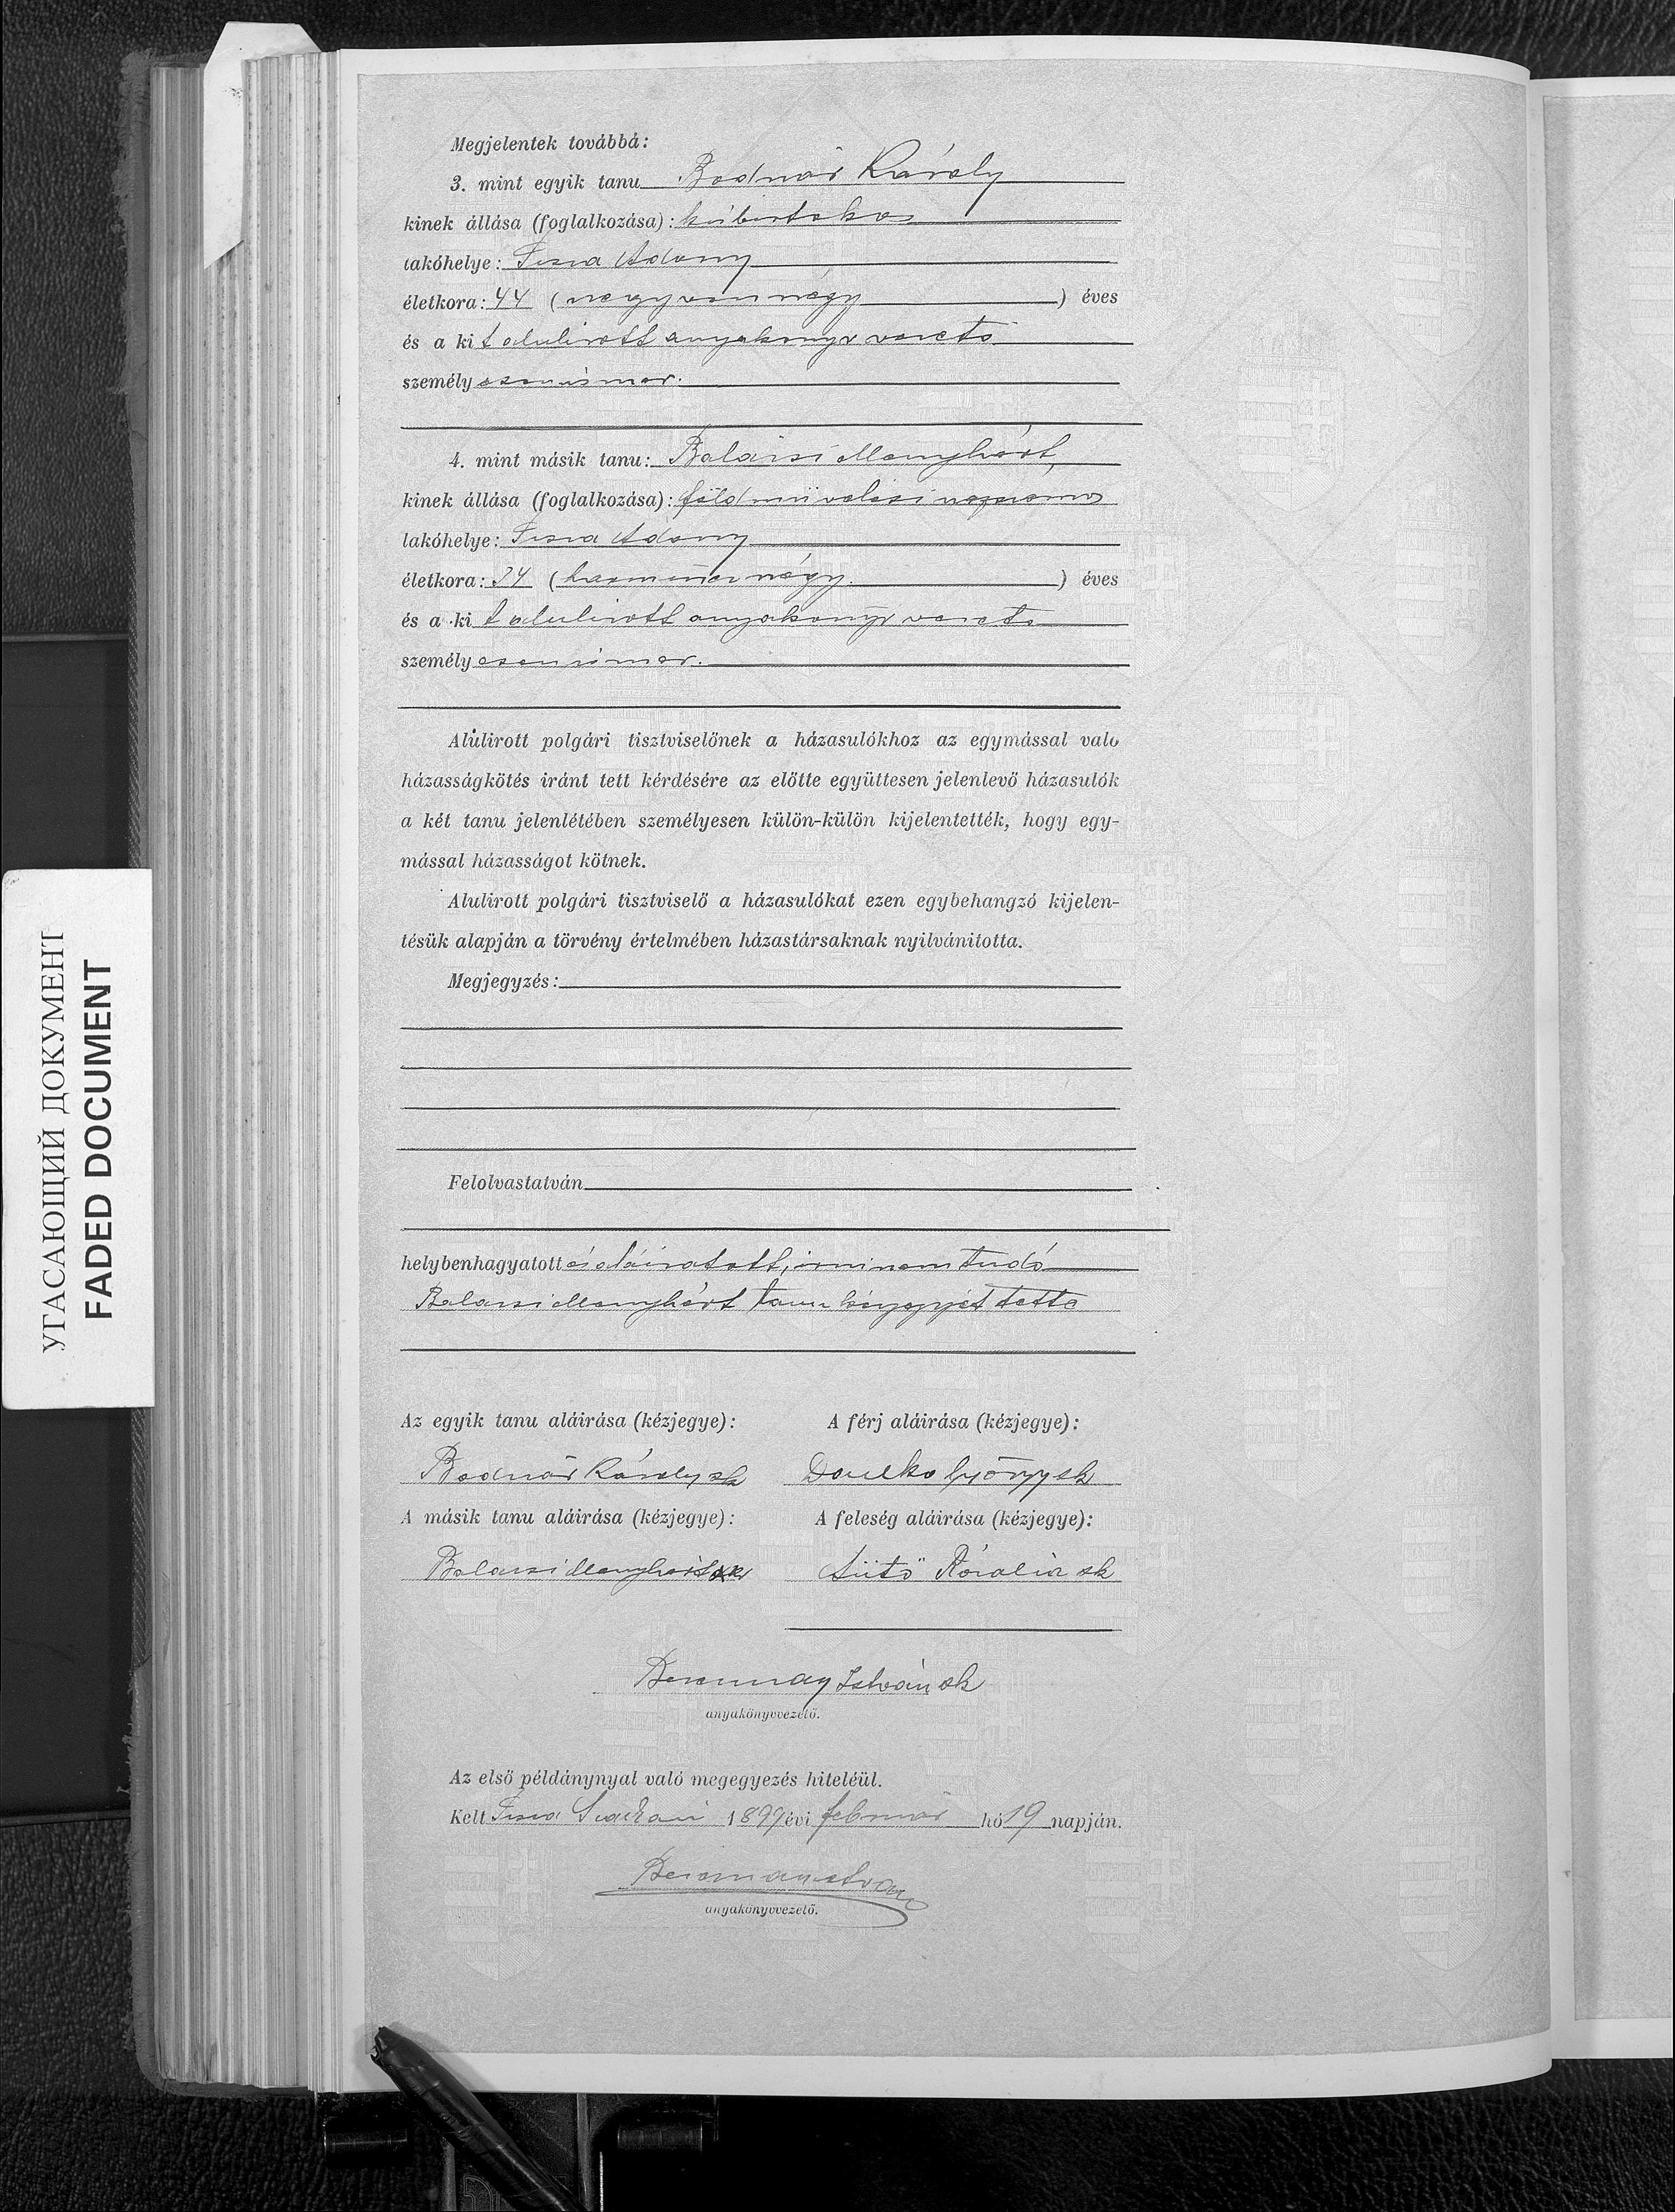 Megjelentek továbbá:
3. mint egyik tanu Bodnár Károly
kinek állása (foglalkozása): kisbirtokos
lakóhelye: Tisza Adony
életkora: 44 (negyvennégy) éves
és a kit alulirott anyakönyvvezető
személyesen ismer.
4. mint másik tanu: Balázsi Menyhért,
kinek állása (foglalkozása): földmüvelési napszámos
lakóhelye: Tisza Adony
életkora: 34 (harmincnégy) éves
és a ki t alulirott anyakönyvvezető
személyesen ismer.
Alulirott polgári tisztviselőnek a házasulókhoz az egymással való
házasságkötés iránt tett kérdésére az előtte együttesen jelenlevő házasulók
a két tanu jelenlétében személyesen külön-külön kijelentették, hogy egy-
mással házasságot kötnek.
Alulirott polgári tisztviselő a házasulókat ezen egybehangzó kijelen-
tésük alapján a törvény értelmében házastársaknak nyilvánitotta.
Megjegyzés:
Felolvastatván
helybenhagyatott és aláiratott, irni nem tudó
Balázsi Menyhért tanu kézjegyét tette
Az egyik tanu aláirása (kézjegye): A férj aláirása (kézjegye):
Bodnár Károly sk György sk
A másik tanu aláirása (kézjegye): A feleség aláirása (kézjegye):
Balázsi Menyhért Sütő Rózália sk
István sk
anyakönyvvezető.
Az első példánynyal való megegyezés hiteléül.
Kelt Tisza 1899 évi február hó 19 napján.
anyakönyvvezető.
УГАСАЮЩИЙ ДОКУМЕНТ
FADED DOCUMENT